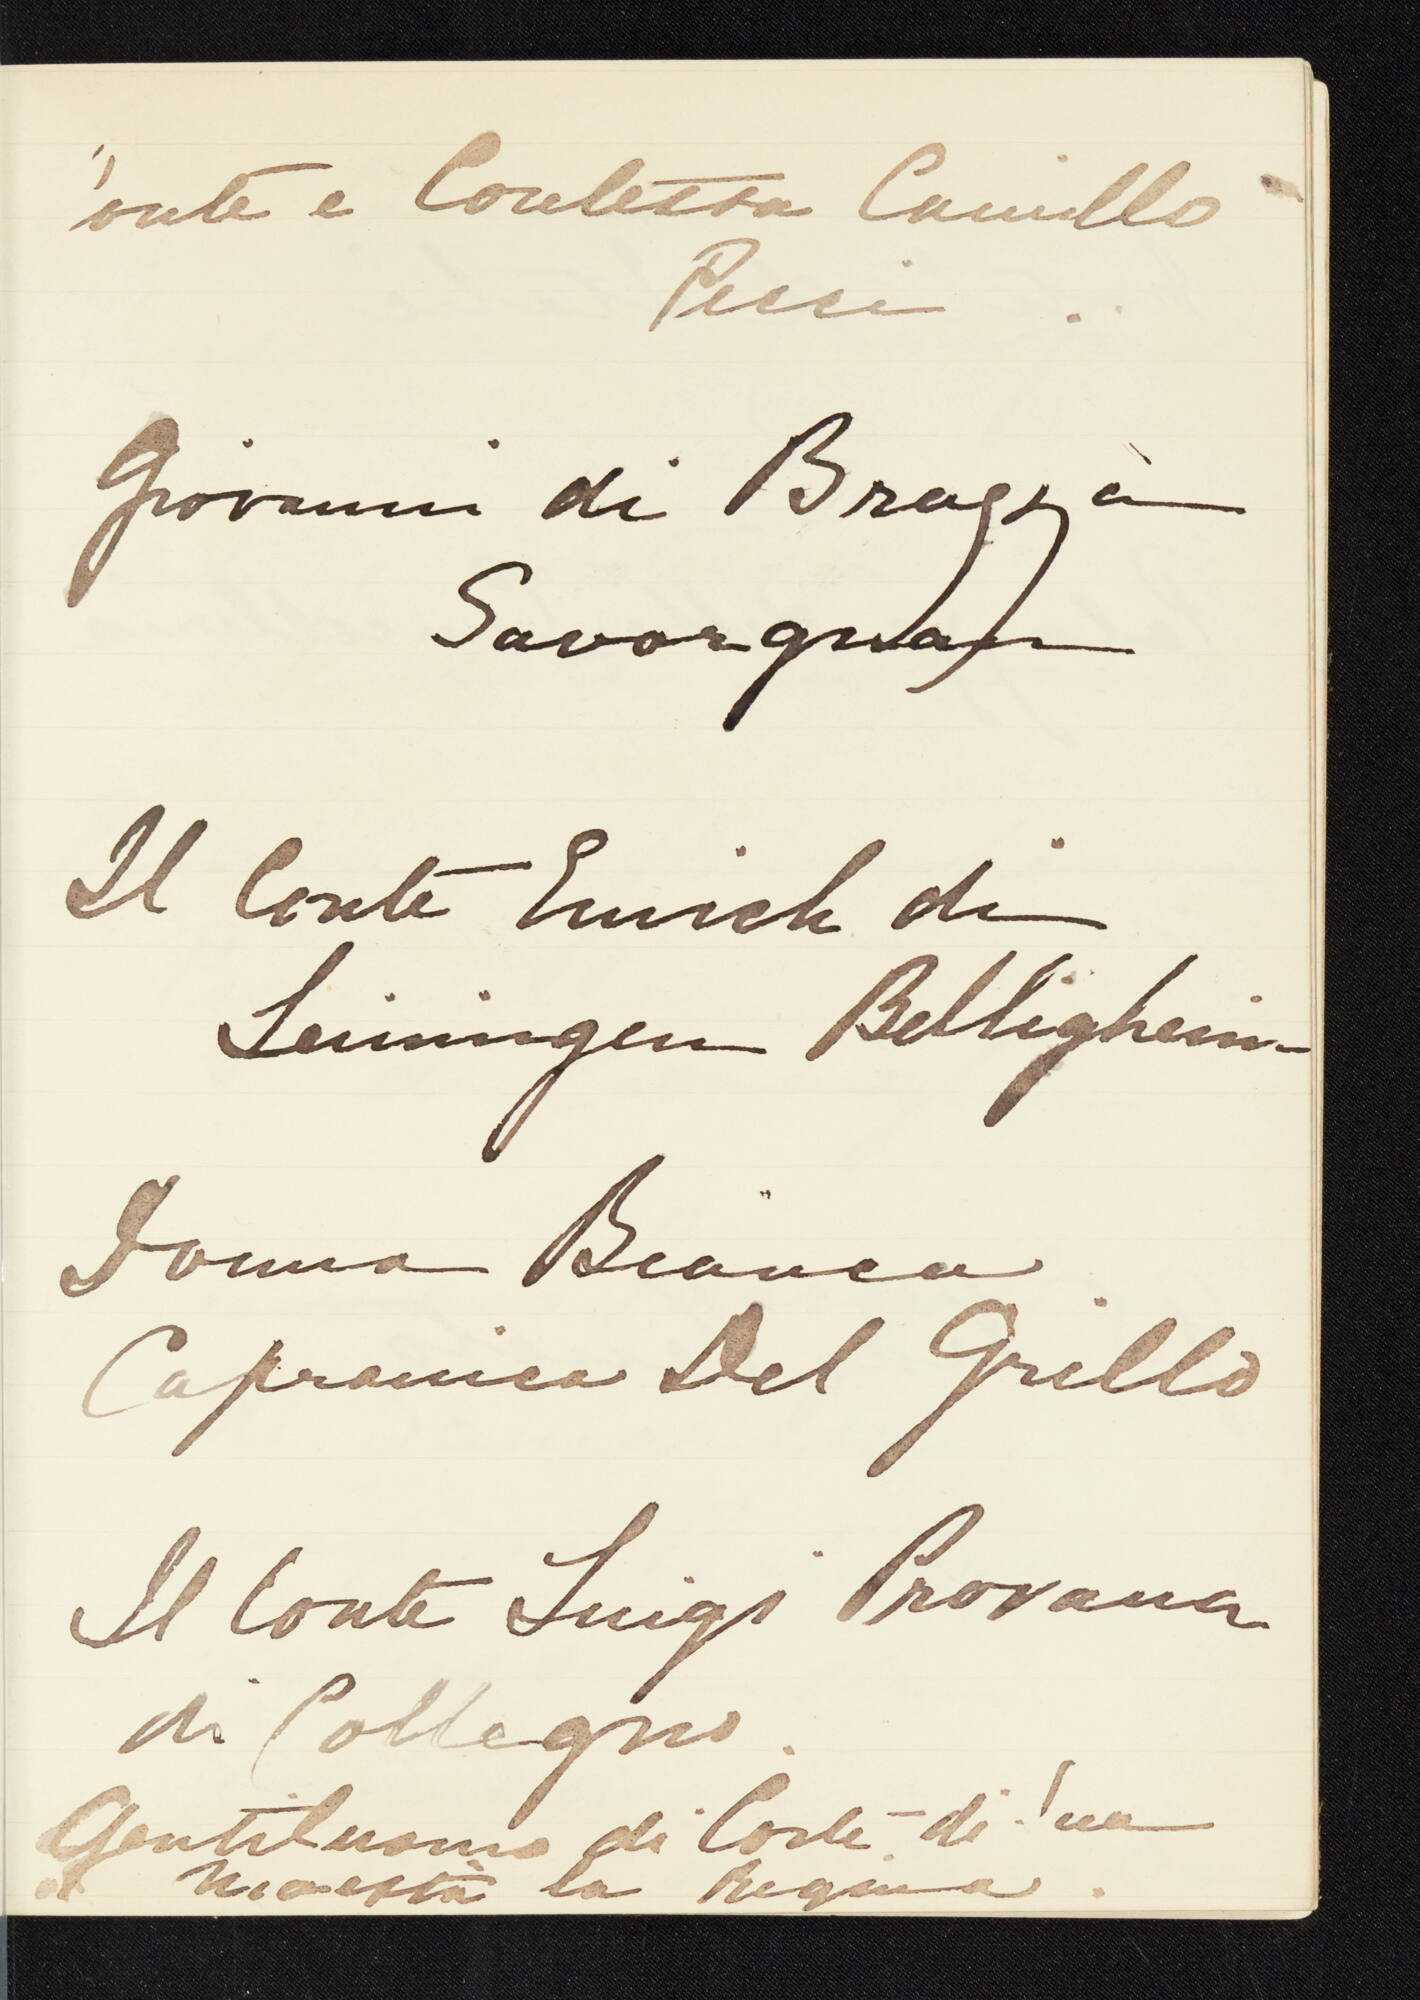 Conte e Contessa Camillo
Pecci.
Giovanni di Brazzà
Savorgnan
Il Conte Emich di
Leiningen Belligheim-
Donna Bianca
Capranica Del Grillo
Il Conte Luigi Provana
di Collegno.
Gentiluomo di Corte di Sua
Maestà la Regina.